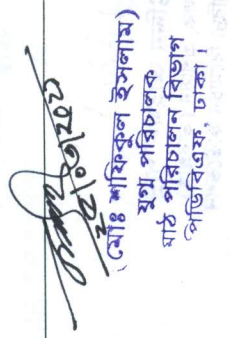 ২৫/০৩/২০২১
(মোঃ শফিকুল ইসলাম)
যুগ্ম পরিচালক
মাঠ পরিচালন বিভাগ
পিডিবিএফ, ঢাকা।